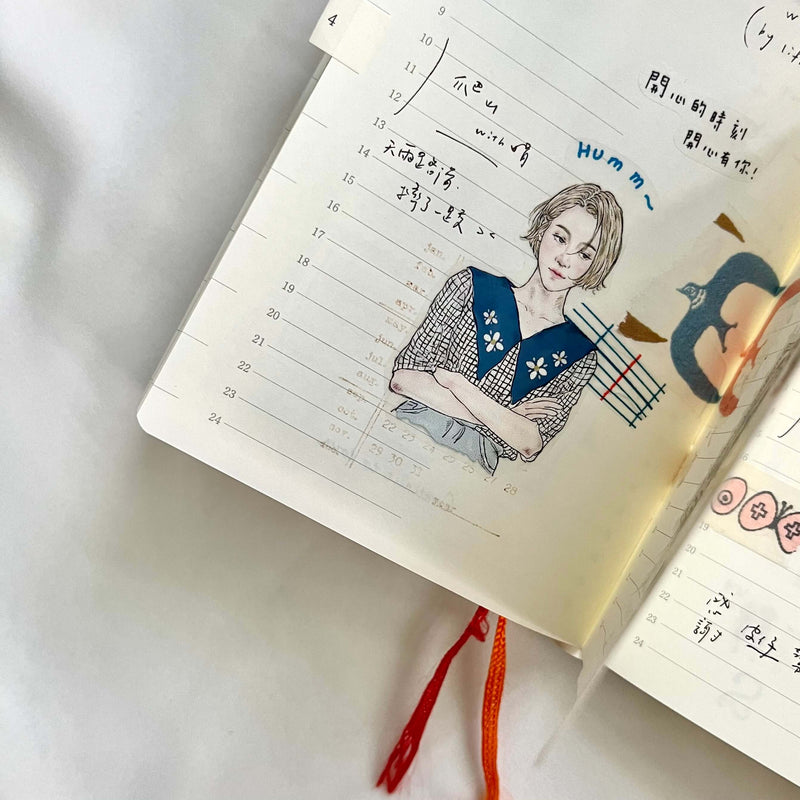 4
9
10
11
12
13
14
15
16
17
18
19
20
21
22
23
24
爬山
with
天雨路滑.
摔了一跤 ><
(by
開心的時刻
開心有你!
HUMM~
jan.
feb.
mar.
apr.
may.
jun.
jul.
aug.
sep.
oct.
nov.
22 23 24 25 26 27 28
29 30 31
19
20
21
22
23
24
感
謝